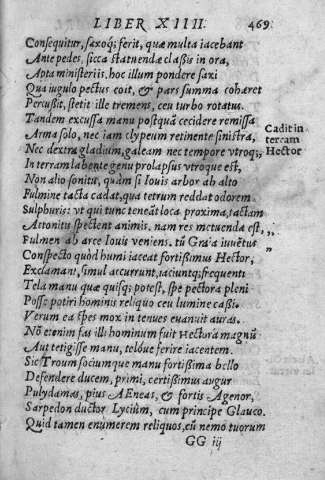 LIBER XIIII. 469.
Consequitur, saxoq́; ferit, quæ multa iacebant
Ante pedes, sicca statuendæ claßis in ora,
Apta ministeriis, hoc illum pondere saxi
Qua iugulo pectus coit, & pars summa cohæret
Percußit, stetit ille tremens, ceu turbo rotatus.
Tandem excussa manu postquā cecidere remissa
Arma solo, nec iam clypeum retinente sinistra,
Cadit in terram Hector
Nec dextra gladium, galeam nec tempore vtroq;,
In terram labente genu prolapsus vtroque est,
Non alio sonitu, quàm si Iouis arbor ab alto
Fulmine tacta cadat, qua tetrum reddat odorem
Sulphuris: vt qui tunc teneāt loca proxima, tactam
Attoniti spectent animis, nam res metuenda est,
Fulmen ab arce Iouis veniens. tū Graia iuuētus
Conspecto quòd humi iaceat fortißimus Hector,
Exclamant, simul accurrunt, iaciuntq; frequenti
Tela manu quæ quisq; potest, spe pectora pleni
Posse potiri hominis reliquo ceu lumine caßi.
Verum ea spes mox in tenues euanuit auras.
Nō etenim fas illi hominum fuit Hectora magnū
Aut tetigisse manu, teloue ferire iacentem.
Sic Troum sociumque manu fortißima bello
Defendere ducem, primi, certißimus augur
Pulydamas, pius AEneas, & fortis Agenor,
Sarpedon ductor Lyciûm, cum principe Glauco.
Quid tamen enumerem reliquos, cū nemo tuorum
GG iij